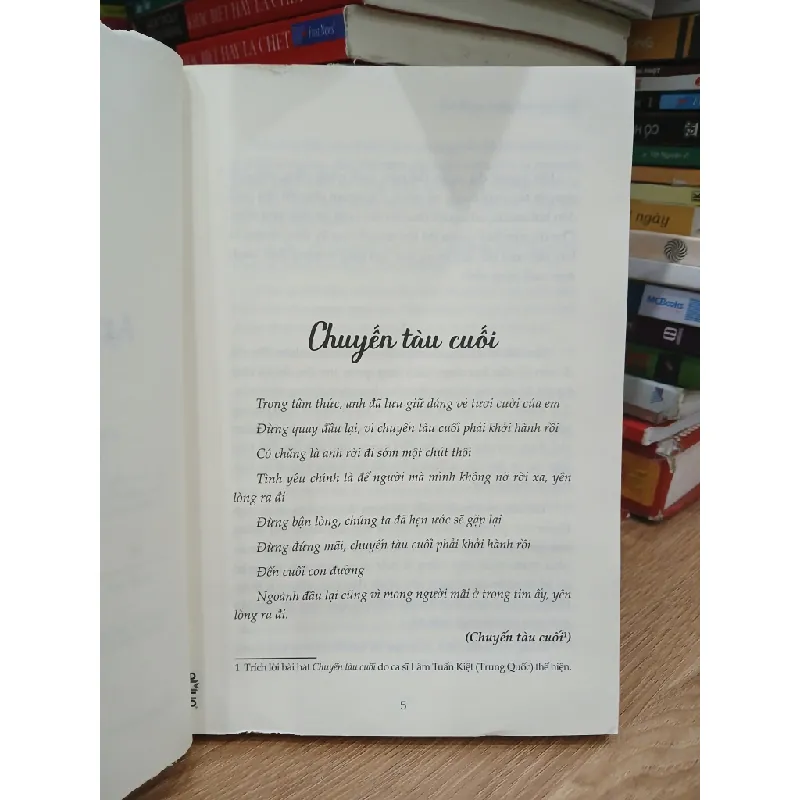 KHÁC BIỆT HAY LÀ CHẾT
MCBooks
ngày
Chuyến tàu cuối
Trong tâm thức, anh đã lưu giữ dáng vẻ tươi cười của em
Đừng quay đầu lại, vì chuyến tàu cuối phải khởi hành rồi
Có chăng là anh rời đi sớm một chút thôi
Tình yêu chính là để người mà mình không nỡ rời xa, yên
lòng ra đi
Đừng bận lòng, chúng ta đã hẹn ước sẽ gặp lại
Đừng đứng mãi, chuyến tàu cuối phải khởi hành rồi
Đến cuối con đường
Ngoảnh đầu lại cũng vì mong người mãi ở trong tim ấy, yên
lòng ra đi.
(Chuyến tàu cuối¹)
1 Trích lời bài hát Chuyến tàu cuối do ca sĩ Lâm Tuấn Kiệt (Trung Quốc) thể hiện.
5